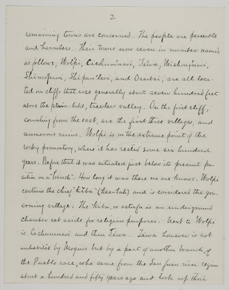 2
remaining towns are concerned. The people are peaceable
and harmless. Their towns now seven in number named
as follows, Wolpi, Cuchumnivi, Tawa, Mishonginivi,
Shimopovi, Shipaulovi, and Oraibi, are all loca-
ted on cliffs that are generally about seven hundred feet
above the plain, below, treacher valley. On the first cliff,
counting from the east, are the first three villages, and
numerous ruins. Wolpi is on the extreme point of this
rocky promontory, where it has rested some six hundred
years. Before that it was situated just below its present po-
sition on a "bench". How long it was there no one knows. Wolpi
contains the chief "kiba" (       ) and is considered the gov-
erning village. The kiba, or estufa is an underground
chamber set aside for religious purposes. Next to Wolpi
is Cuchumnivi and then Tawa. Tawa however is not
inhabited by Moquis but by a part of another branch of
the Pueblo race, who came from the San Juan river region
about a hundred and fifty years ago and took up their